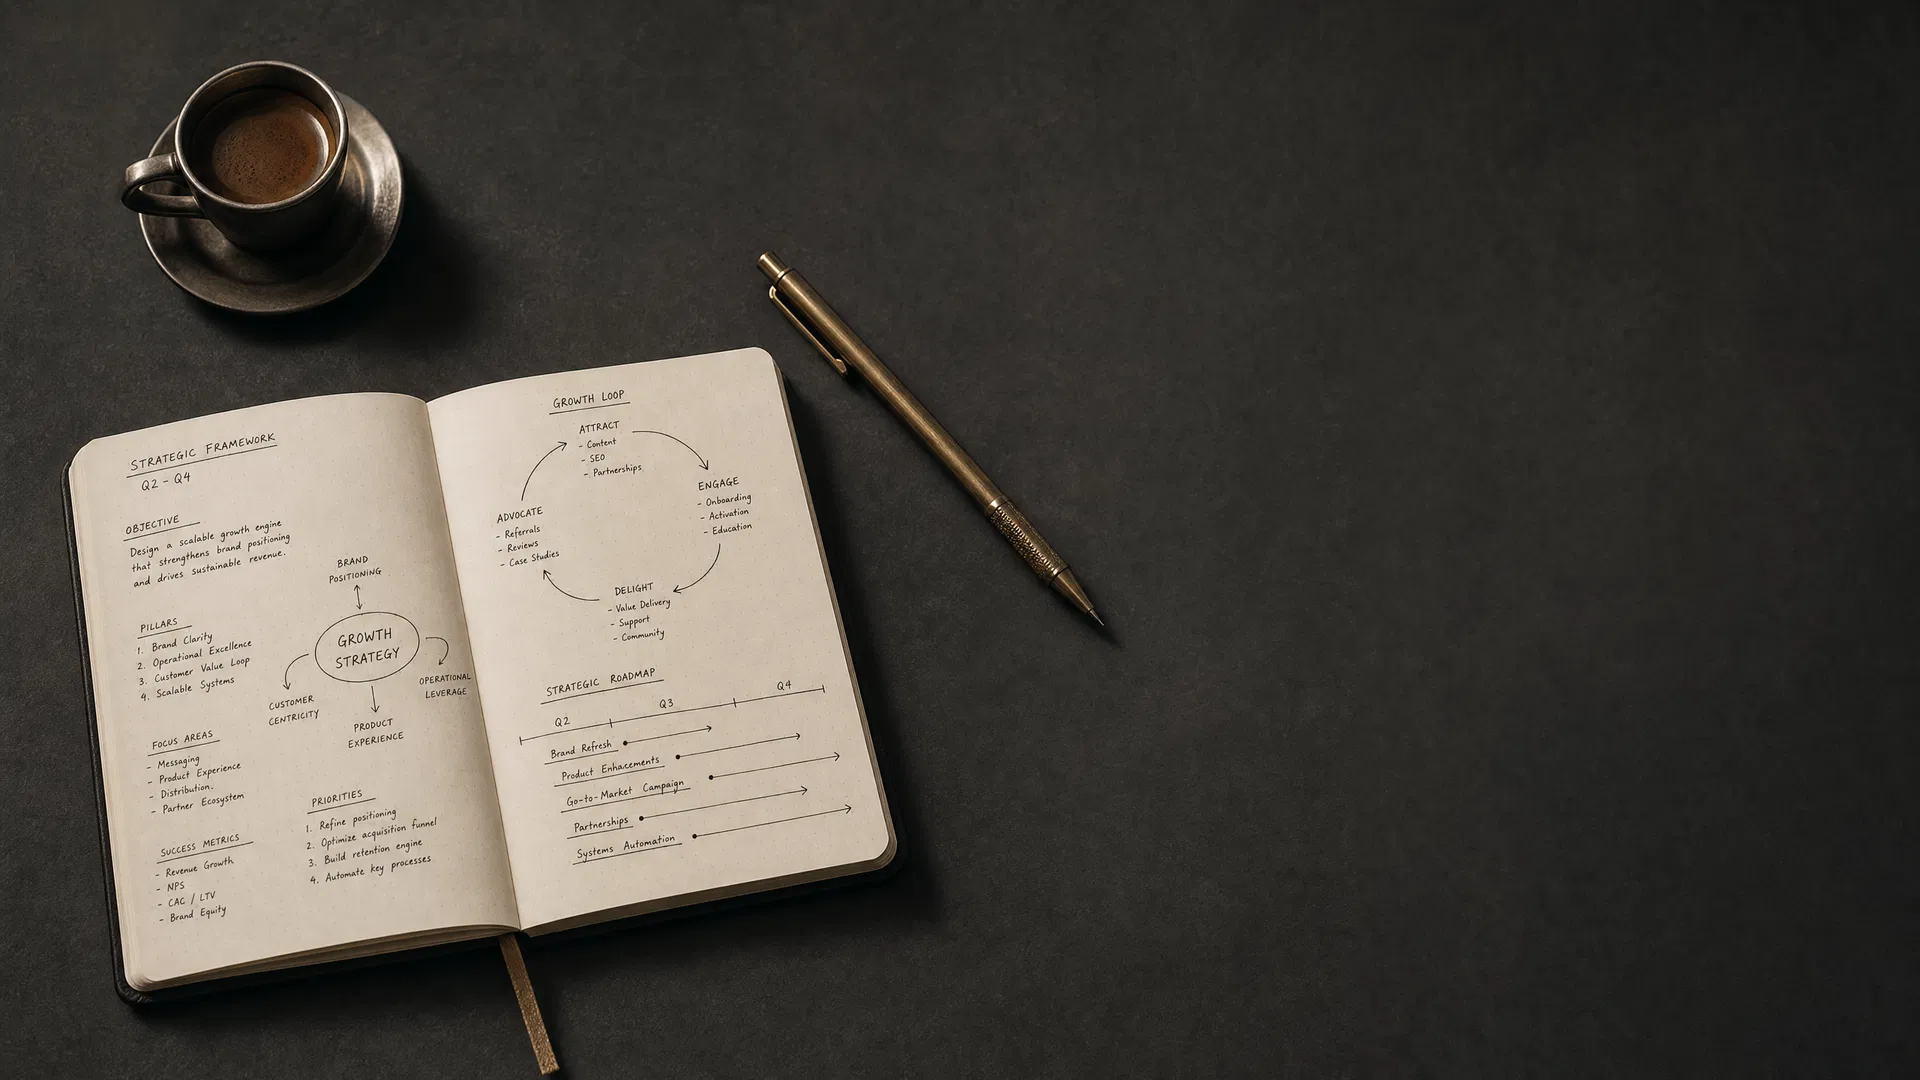 STRATEGIC FRAMEWORK
Q2 - Q4
OBJECTIVE
Design a scalable growth engine
that strengthens brand positioning
and drives sustainable revenue.
BRAND
POSITIONING
GROWTH
STRATEGY
CUSTOMER
CENTRICITY
OPERATIONAL
LEVERAGE
PRODUCT
EXPERIENCE
PILLARS
1. Brand Clarity
2. Operational Excellence
3. Customer Value Loop
4. Scalable Systems
FOCUS AREAS
- Messaging
- Product Experience
- Distribution.
- Partner Ecosystem
SUCCESS METRICS
- Revenue Growth
- NPS
- CAC / LTV
- Brand Equity
PRIORITIES
1. Refine positioning
2. Optimize acquisition funnel
3. Build retention engine
4. Automate key processes
GROWTH LOOP
ATTRACT
- Content
- SEO
- Partnerships
ENGAGE
- Onboarding
- Activation
- Education
DELIGHT
- Value Delivery
- Support
- Community
ADVOCATE
- Referrals
- Reviews
- Case Studies
STRATEGIC ROADMAP
Q2
Q3
Q4
Brand Refresh
Product Enhacements
Go-to-Market Campaign
Partnerships
Systems Automation